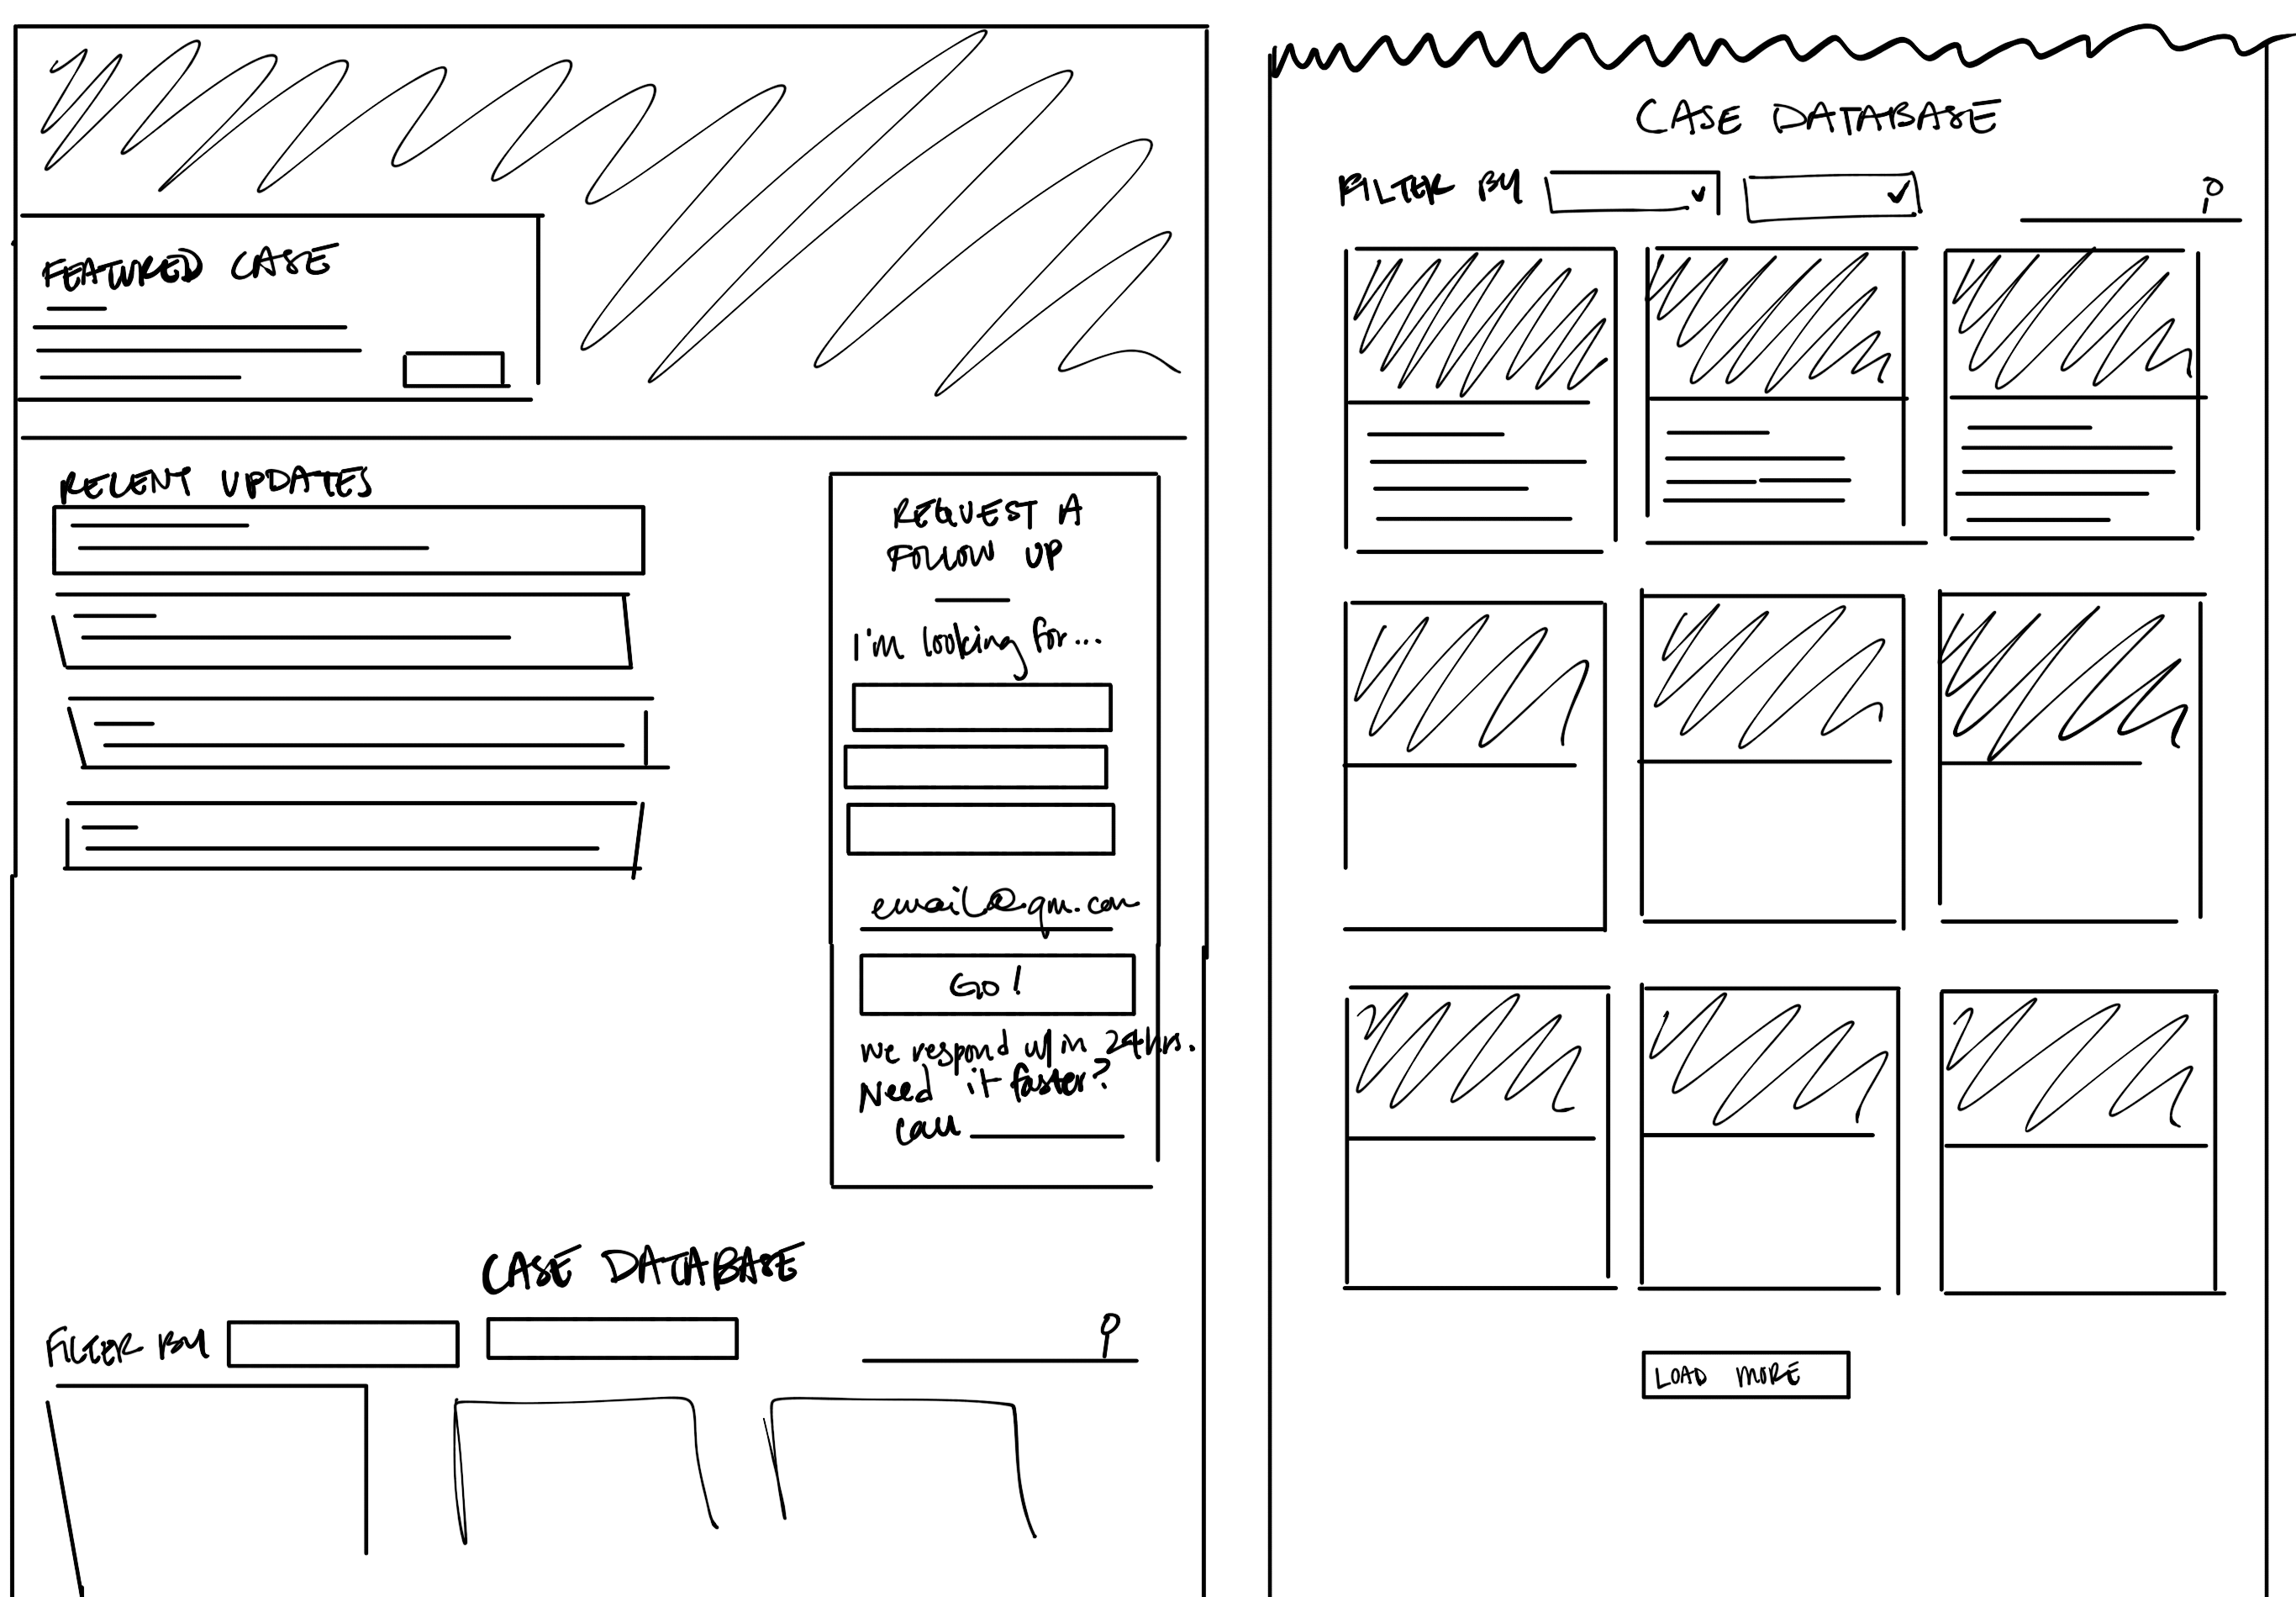 FEATURED CASE
RECENT UPDATES
REQUEST A
FOLLOW UP
I'm looking for...
email@gm.com
GO!
we respond w/in 24hrs.
Need it faster?
call
CASE DATABASE
FILTER BY
CASE DATABASE
FILTER BY
LOAD MORE